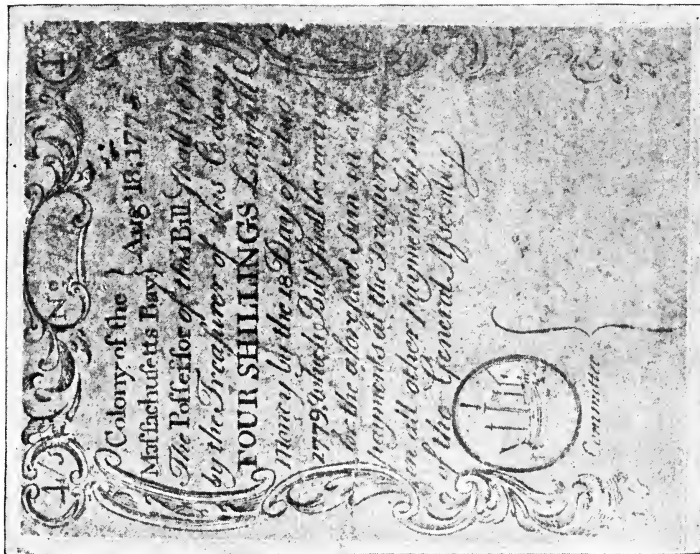 4/ No 4/
Colony of the } Augt 18. 1775
Maſſachuſetts Bay }
The Poſſeſſor of this Bill ſhall be paid
by the Treaſurer of this Colony
FOUR SHILLINGS Lawfull
money by the 18 Day of Augt
1779. which Bill ſhall be received
for the aforeſaid Sum in all
payments at the Treaſury and
in all other payments by order
of the General Aſsembly
Committee